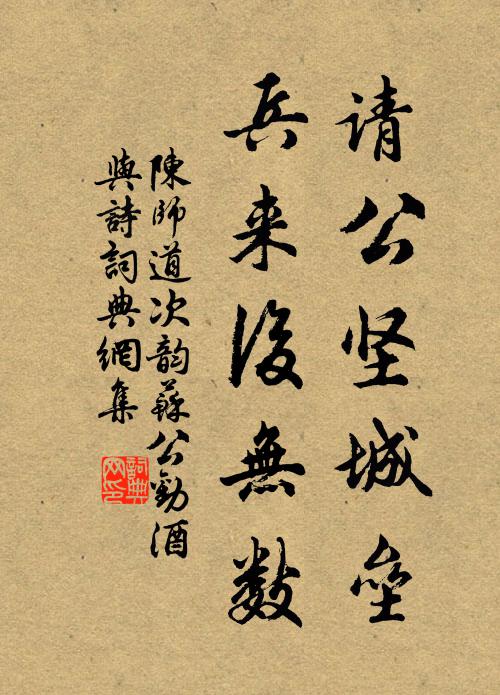 请公坚城垒
兵来後無数
陳師道次韵蘇公勸酒
與詩詞典網集
詞典
网印